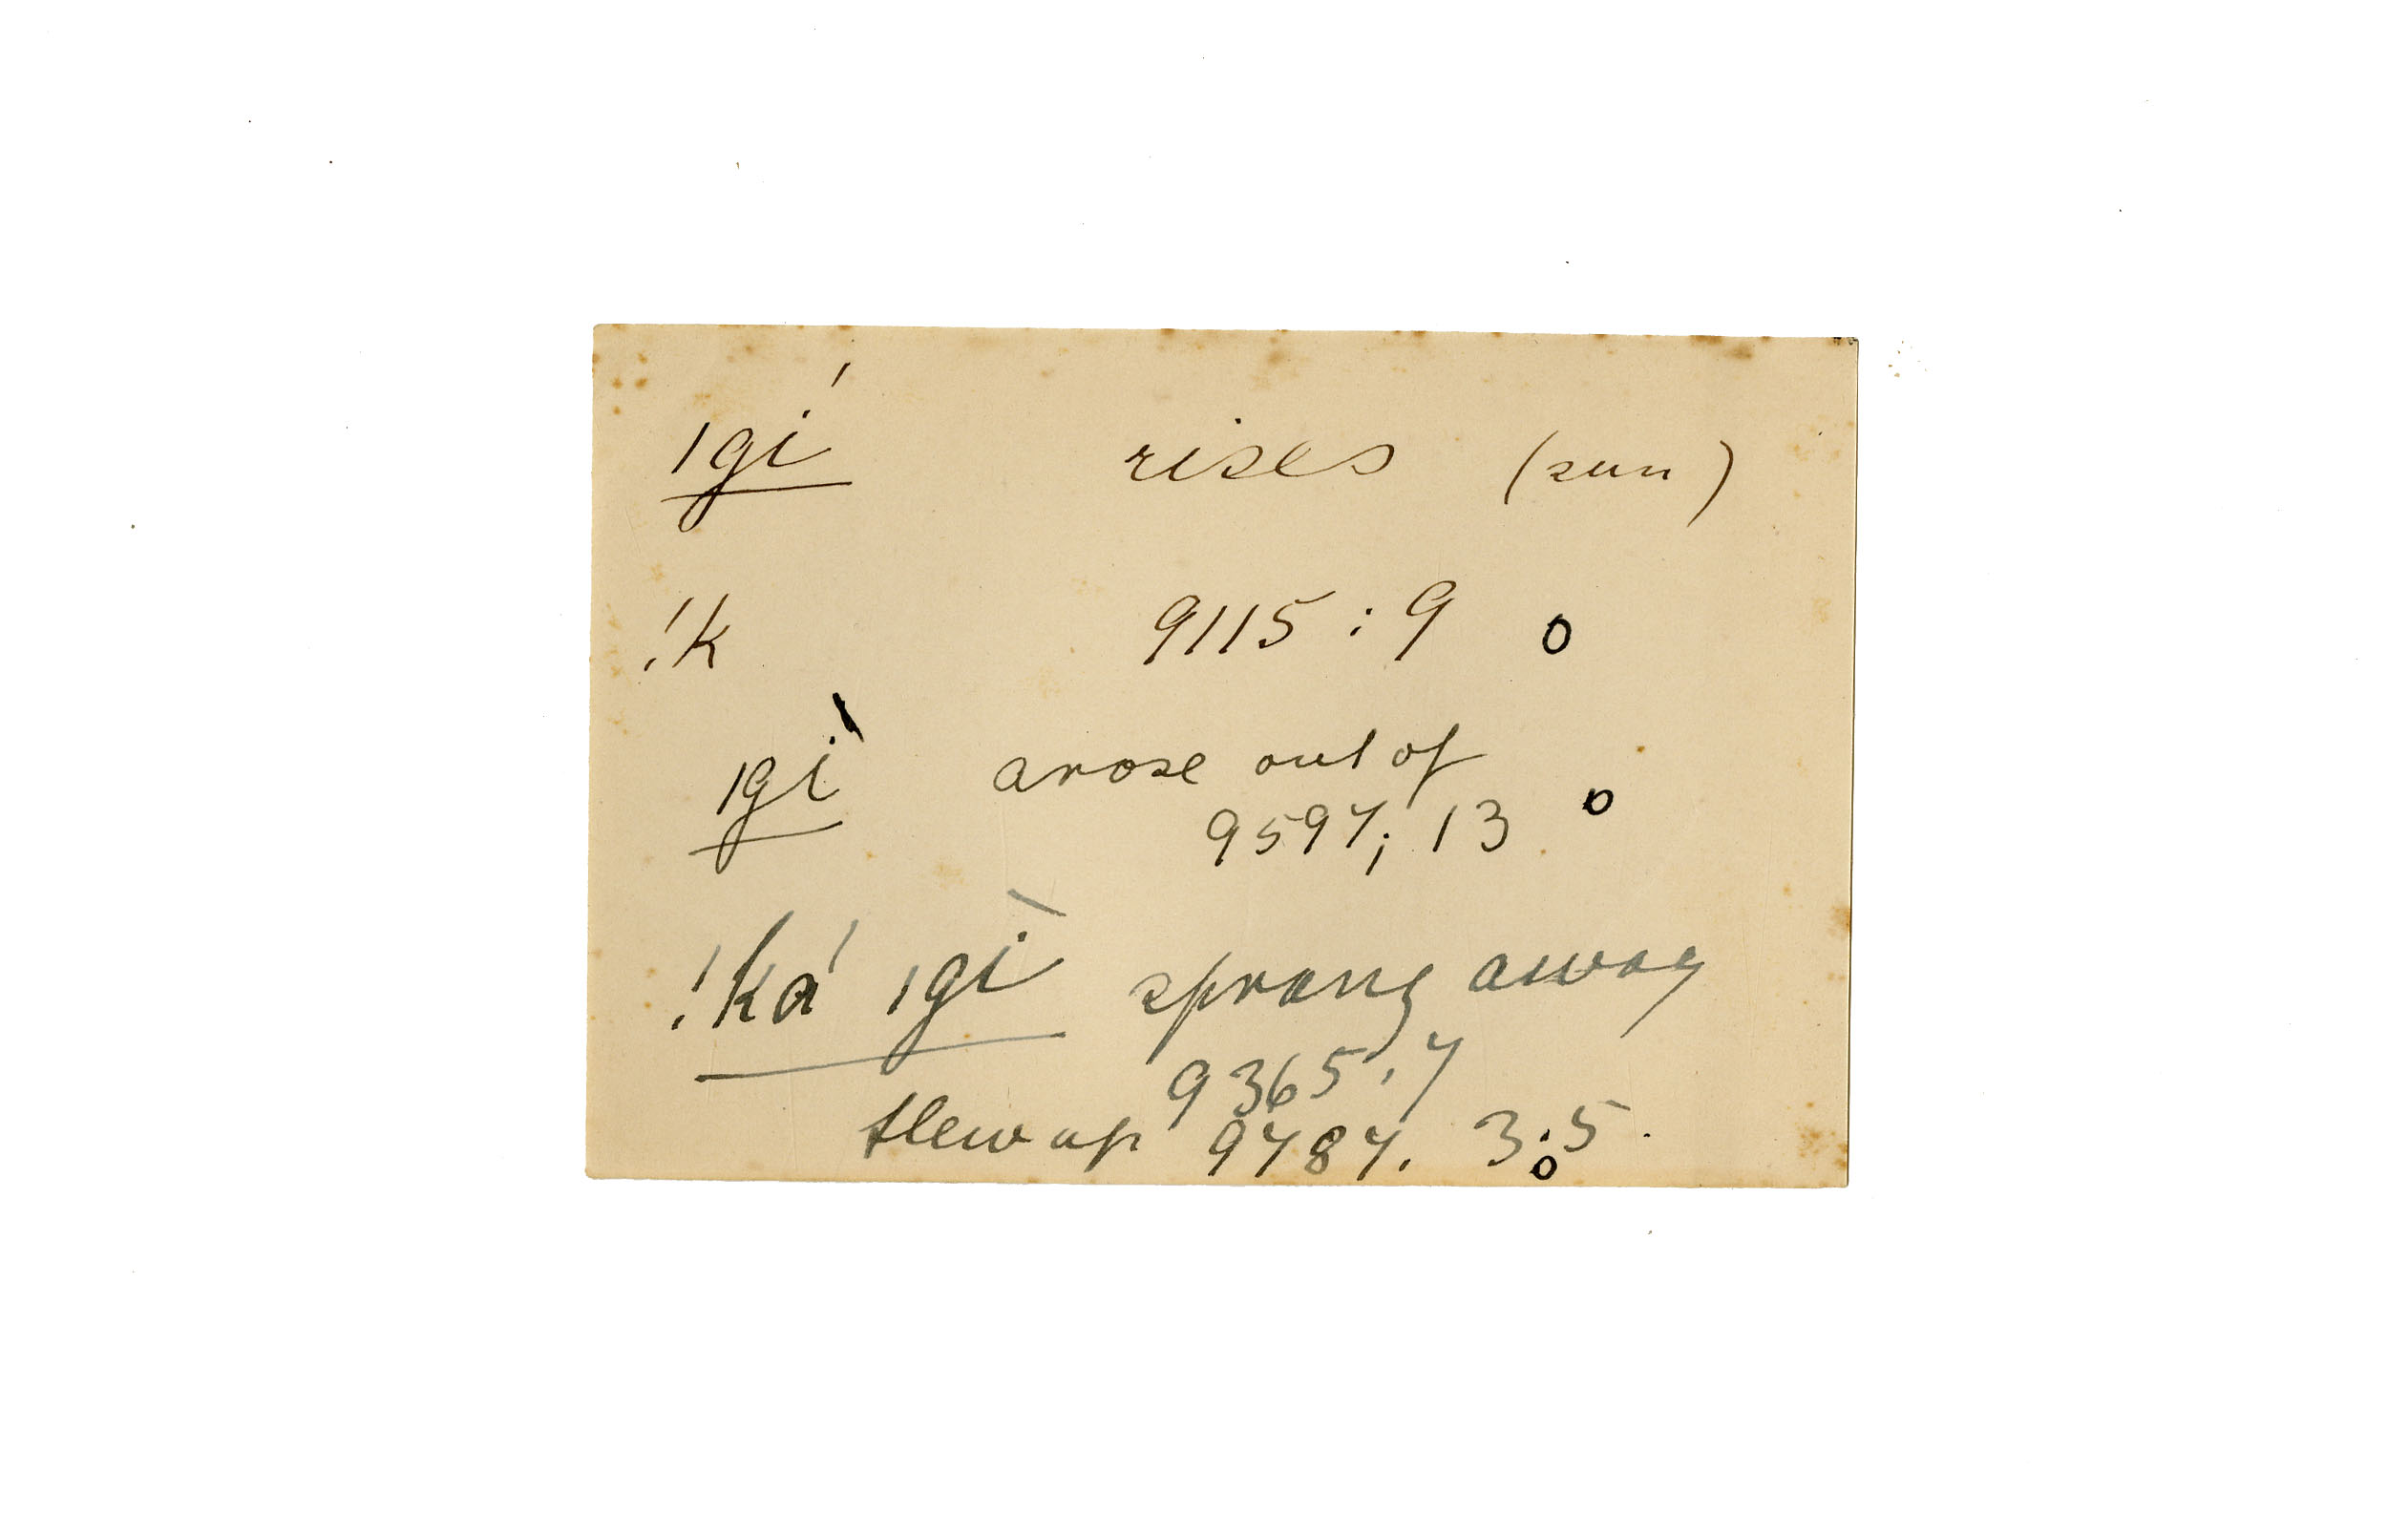 ıgí rises (sun)
!k 9115:9 o
ıgì arose out of
9597; 13 o
!ká ıgì sprang away
9365; 7
flew up 9787. 3:5.
o